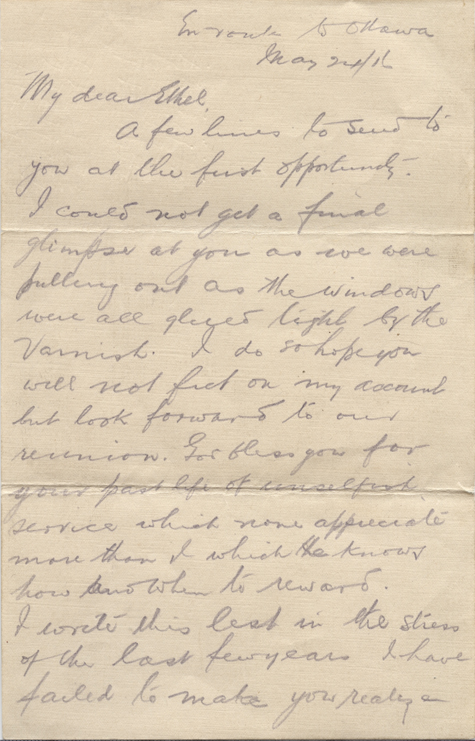 En route to Ottawa
May 24/16
My dear Ethel,
A few lines to send to
you at the first opportunity.
I could not get a final
glimpse at you as we were
pulling out as the windows
were all glued tight by the
Varnish. I do so hope you
will not fret on my account
but look forward to our
reunion. God bless you for
your past life of unselfish
service which none appreciate
more than I which He knows
how and when to reward.
I write this lest in the stress
of the last few years I have
failed to make you realize